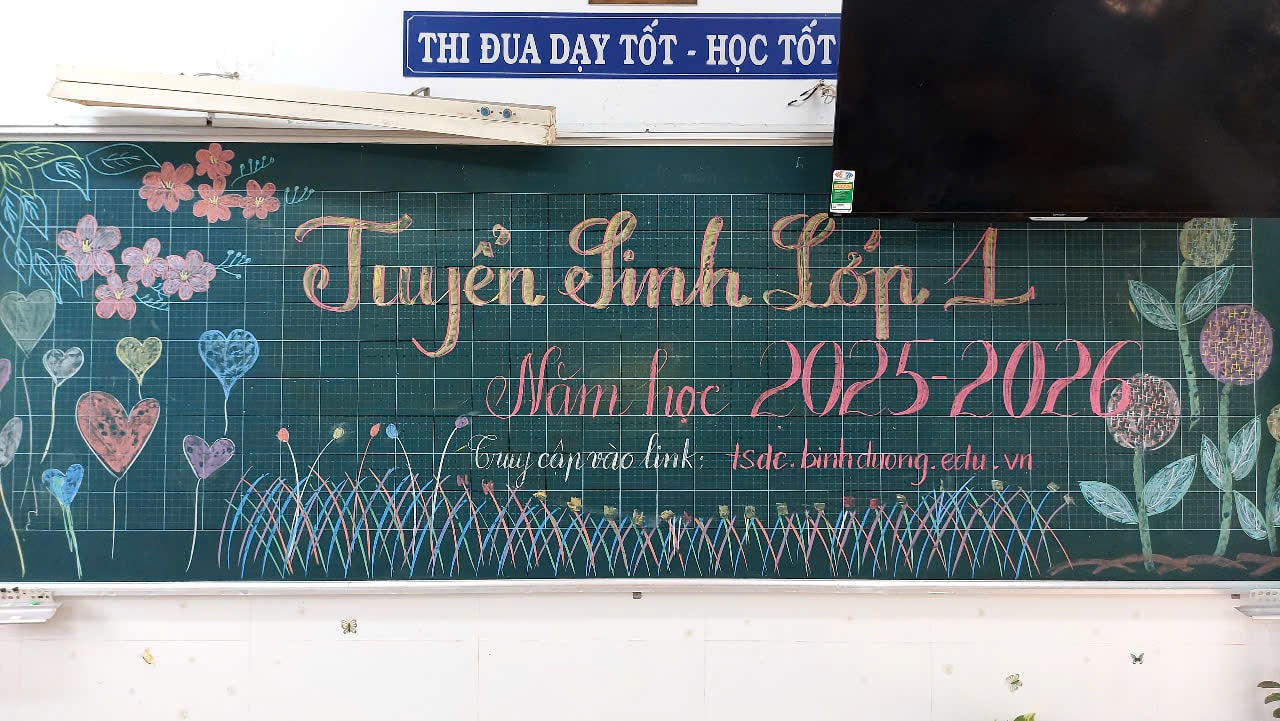 THI ĐUA DẠY TỐT - HỌC TỐT
Tuyển Sinh Lớp 1
Năm học 2025-2026
Truy cập vào link: tsdc.binhduong.edu.vn